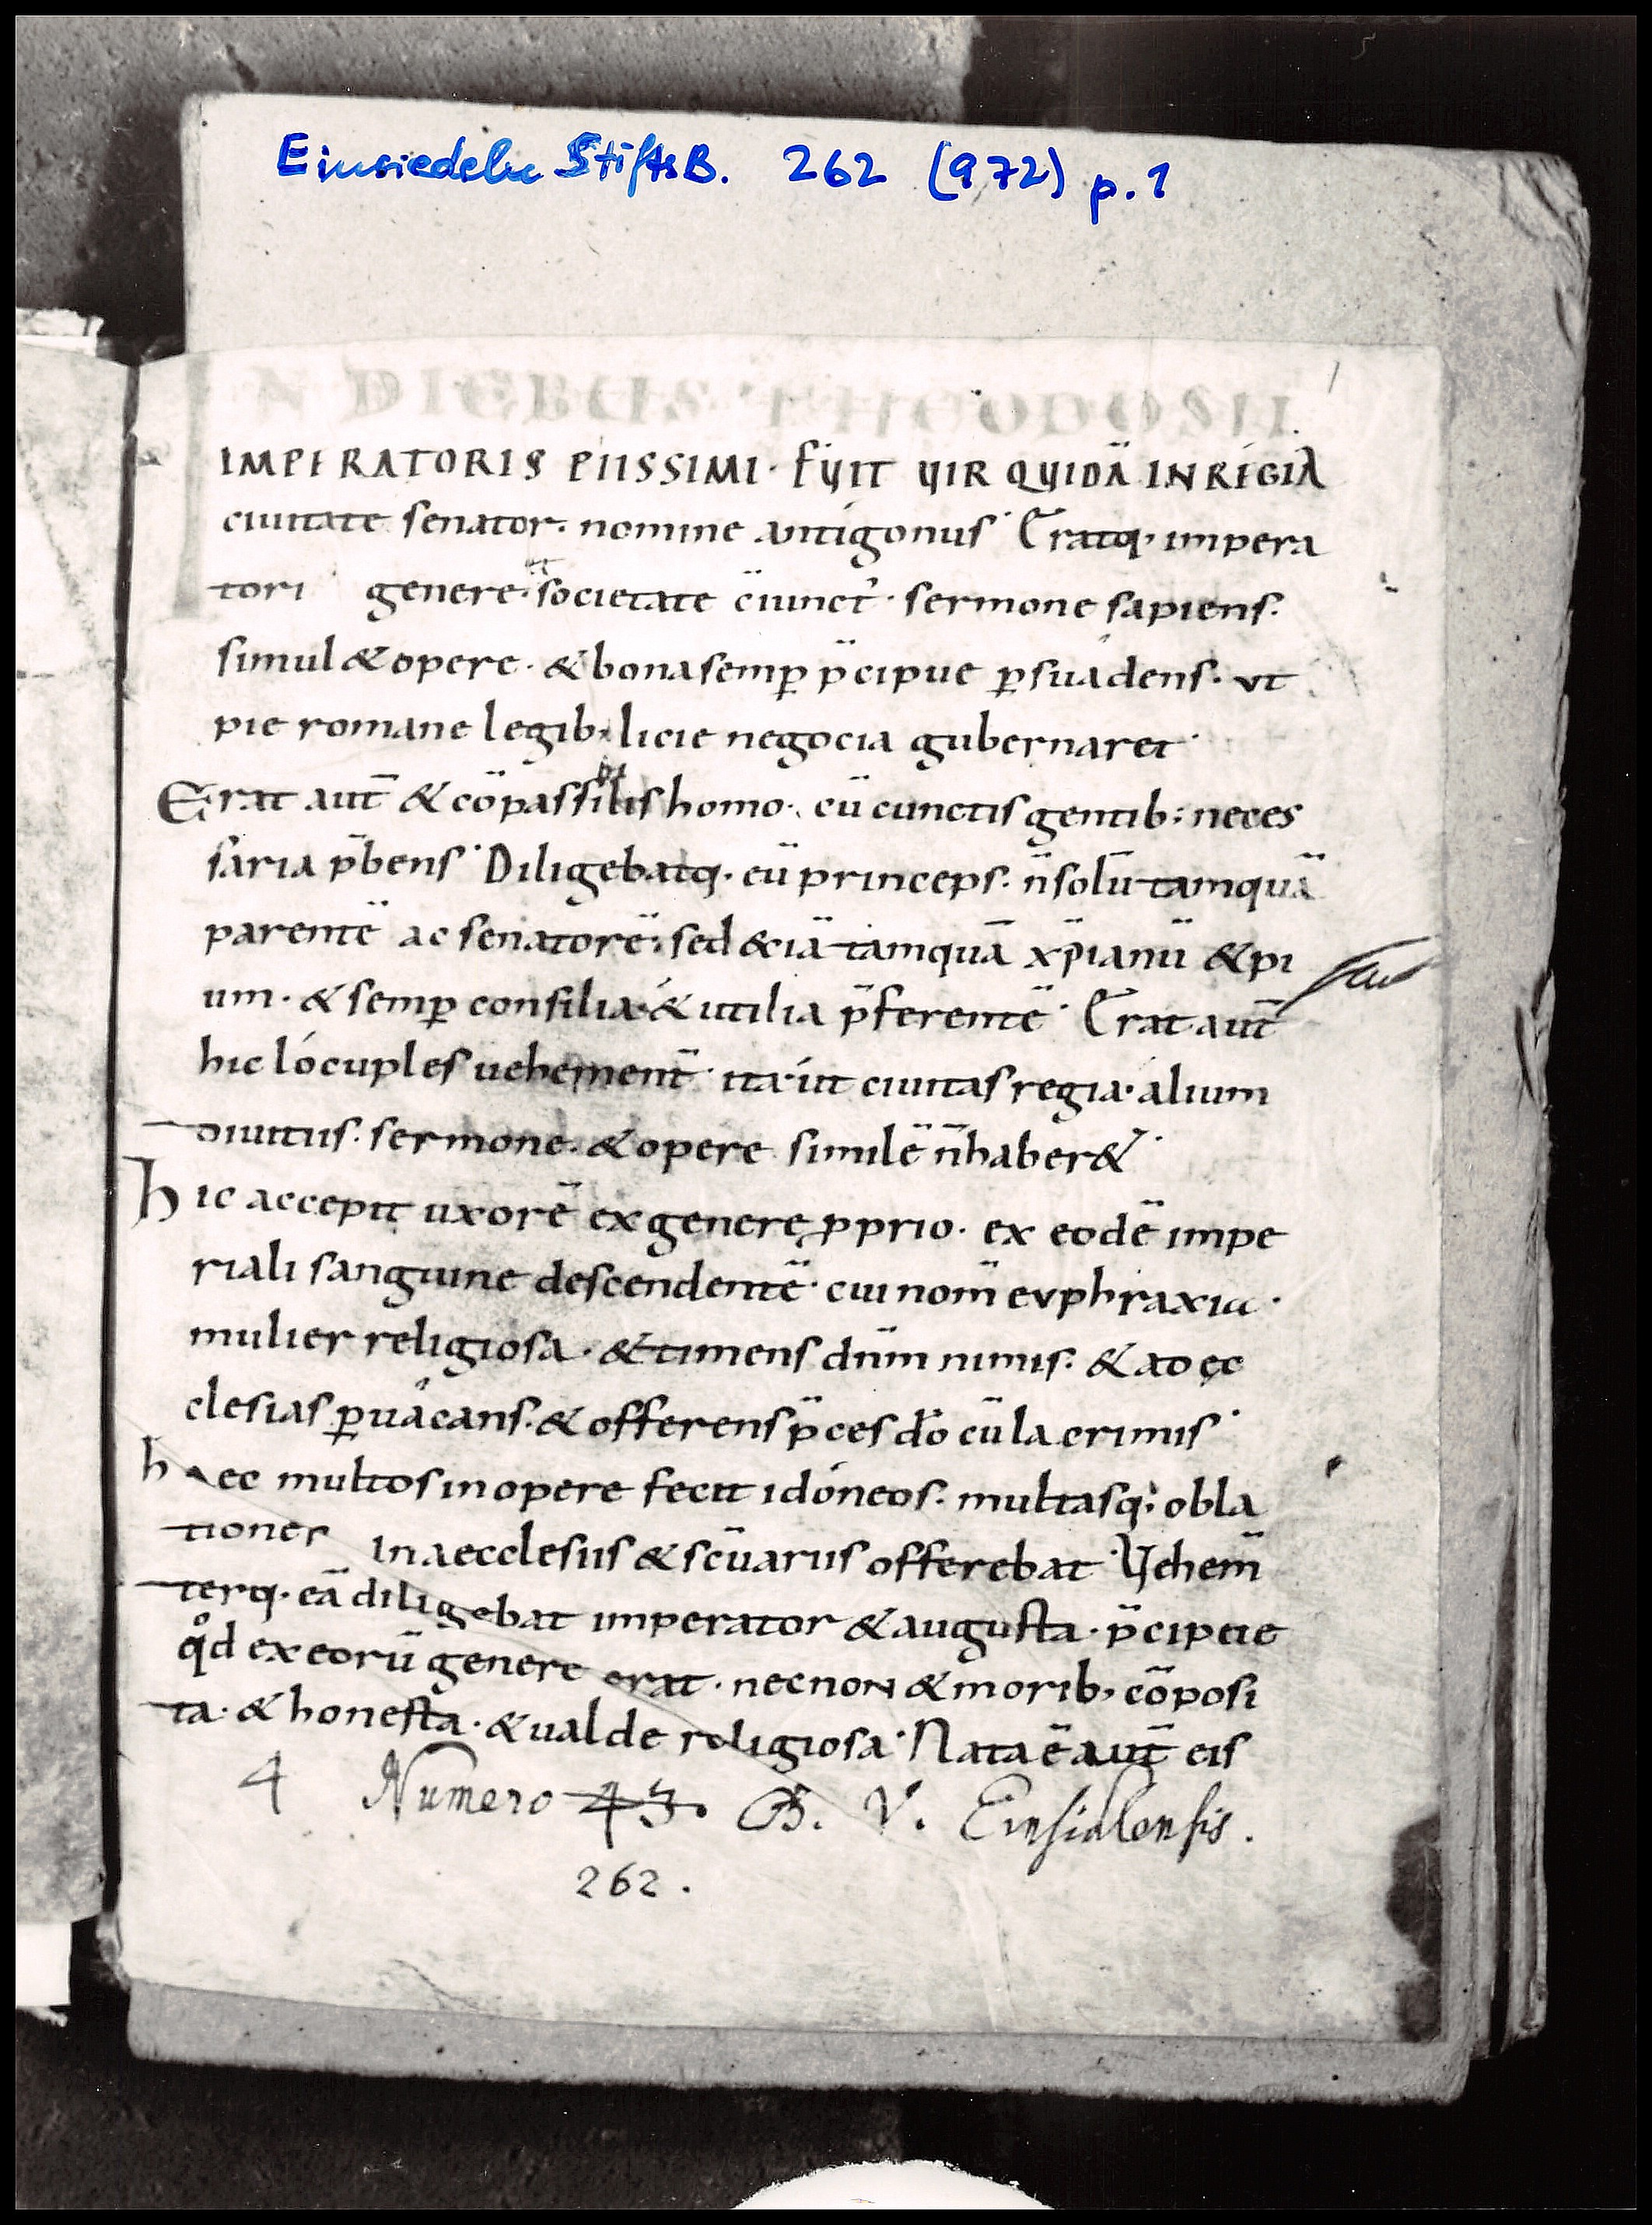 Einsiedeln StiftsB. 262 (972) p. 1
1
IN DIEBUS THEODOSII
IMPERATORIS PIISSIMI · FUIT UIR QUIDĀ IN REGIA
ciuitate senator · nomine antigonus · Eratq· impera
tori genere · et societate c̄iunct᷒ · sermone sapiens ·
simul & opere · & bona semꝑ p̄cipue ꝑsuadens · vt
pie romane legib; licie negocia gubernaret ·
Erat aut̄ & cōpassibilis homo · cū cunctis gentib; neces
saria p̄bens · Diligebatq· eū princeps · n̄ solū tamquā
parentē ac senatorē · sed &iā tamquā xp̄ianū & pi
um · & semꝑ consilia · & utilia p̄ferentē · Erat aut̄
hic lócuples uehement̄ · ita · út ciuitas regia · alium
diuitiis · sermone · & opere similē n̄ haber& ·
hic accepit uxorē ex genere ꝓprio · ex eodē impe
riali sanguine descendentē · cui nom̄ evphraxia ·
mulier religiosa · & timens dn̄m nimis · & ad ęc
clesias ꝑuácans · & offerens p̄ces dō cū lacrimis ·
haec multos in opere fecit idóneos · multasq; obla
tiones in aecclesiis & sc̄uariis offerebat · Uehem̄
terq· eā diligebat imperator & augusta · p̄cipue
qd̊ ex eorū genere erat · necnon & morib; cōposi
ta · & honesta · & ualde religiosa · Nata ē aut̄ eis
4 Numero 43. B. V. Einsidlensis.
262.